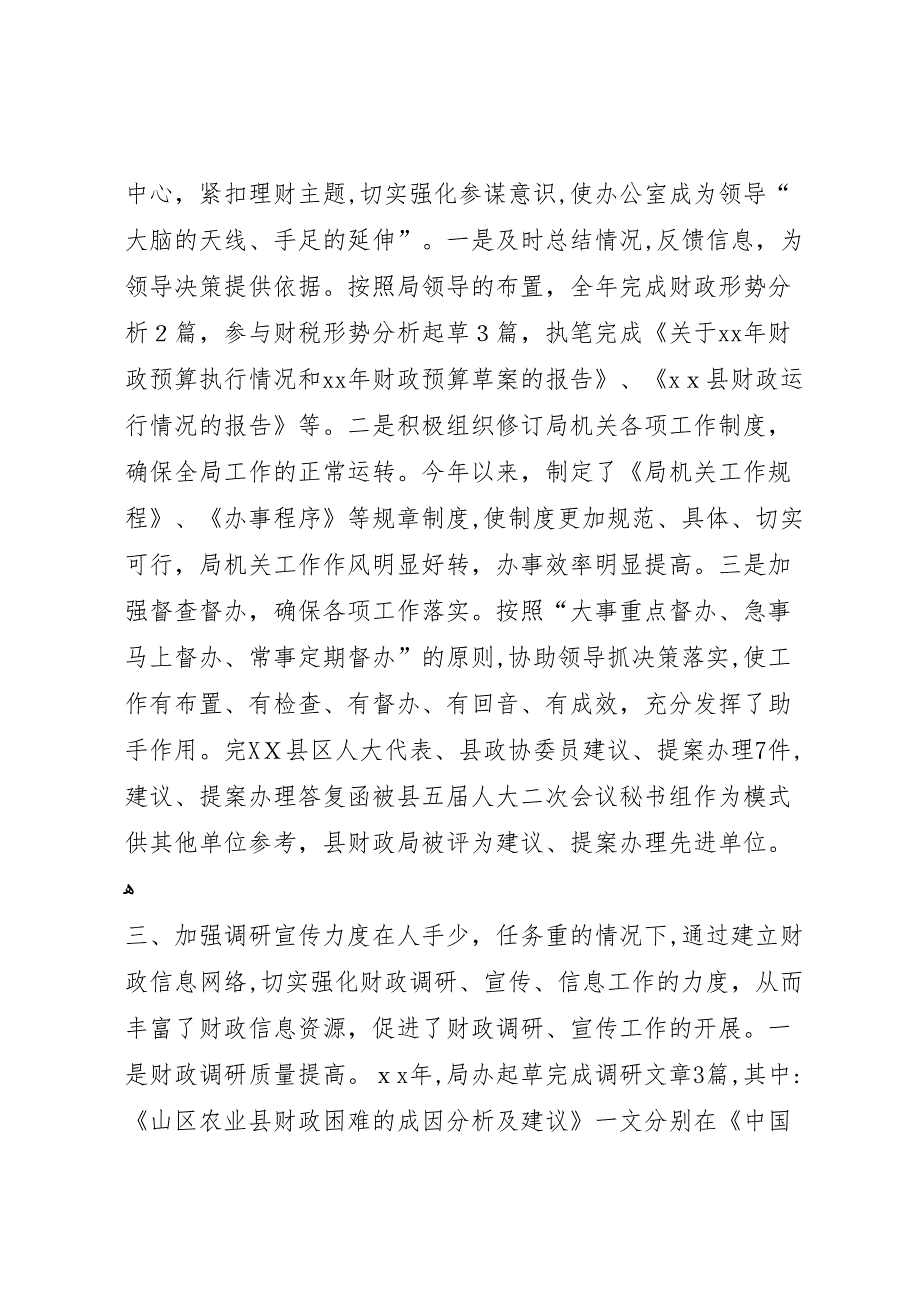 中心，紧扣理财主题,切实强化参谋意识,使办公室成为领导“
大脑的天线、手足的延伸”。一是及时总结情况,反馈信息，为
领导决策提供依据。按照局领导的布置，全年完成财政形势分
析２篇，参与财税形势分析起草３篇，执笔完成《关于xx年财
政预算执行情况和xx年财政预算草案的报告》、《xｘ县财政运
行情况的报告》等。二是积极组织修订局机关各项工作制度，
确保全局工作的正常运转。今年以来，制定了《局机关工作规
程》、《办事程序》等规章制度,使制度更加规范、具体、切实
可行，局机关工作作风明显好转，办事效率明显提高。三是加
强督查督办，确保各项工作落实。按照“大事重点督办、急事
马上督办、常事定期督办”的原则,协助领导抓决策落实,使工
作有布置、有检查、有督办、有回音、有成效，充分发挥了助
手作用。完XＸ县区人大代表、县政协委员建议、提案办理7件,
建议、提案办理答复函被县五届人大二次会议秘书组作为模式
供其他单位参考，县财政局被评为建议、提案办理先进单位。
ﻫ
三、加强调研宣传力度在人手少，任务重的情况下,通过建立财
政信息网络,切实强化财政调研、宣传、信息工作的力度，从而
丰富了财政信息资源，促进了财政调研、宣传工作的开展。一
是财政调研质量提高。ｘx年,局办起草完成调研文章3篇,其中:
《山区农业县财政困难的成因分析及建议》一文分别在《中国